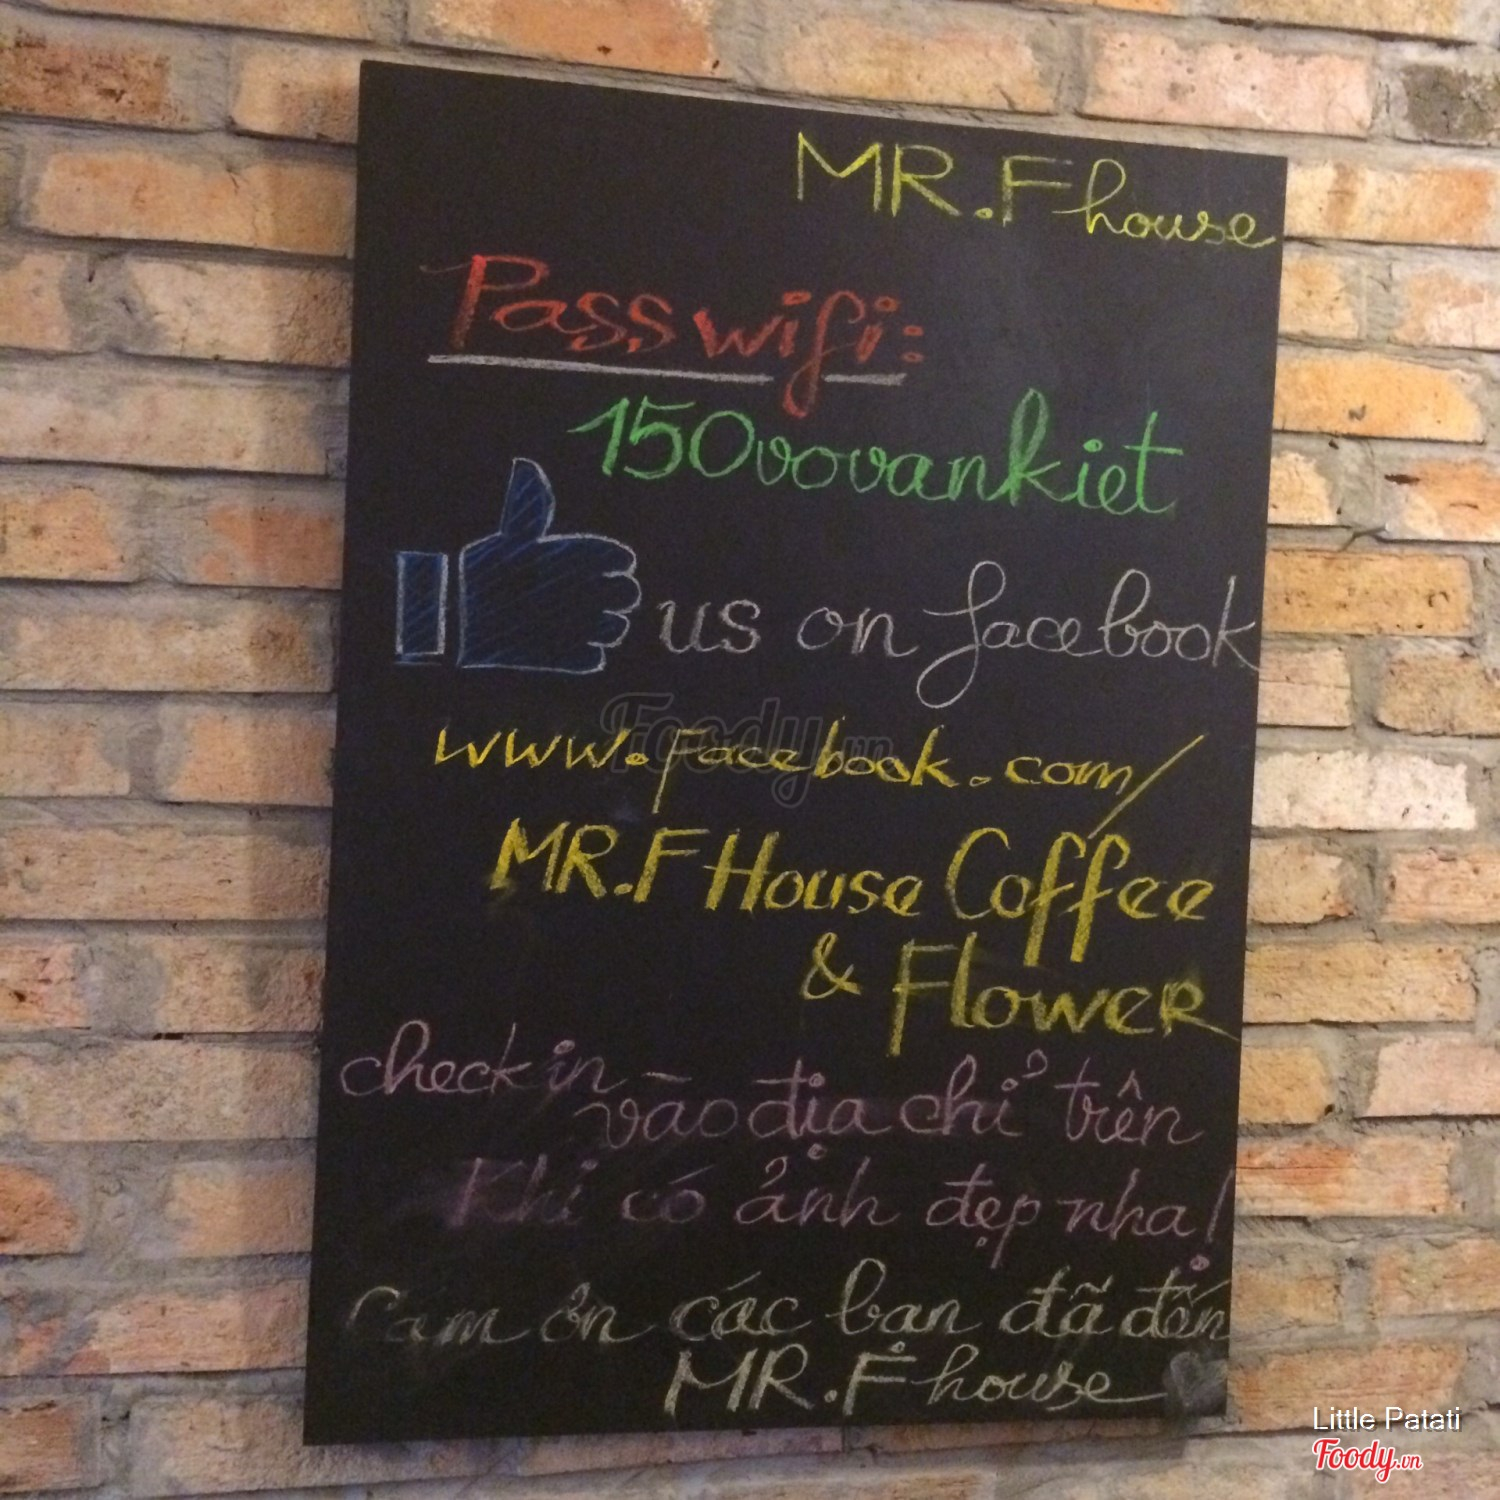 MR.F house
Pass wifi:
150vovankiet
us on facebook
www.facebook.com/
MR.F House Coffee
& Flower
check in
vào địa chỉ trên
Khi có ảnh đẹp nha!
Cám ơn các bạn đã đến
MR.F house
Foody.vn
Little Patati
Foody.vn